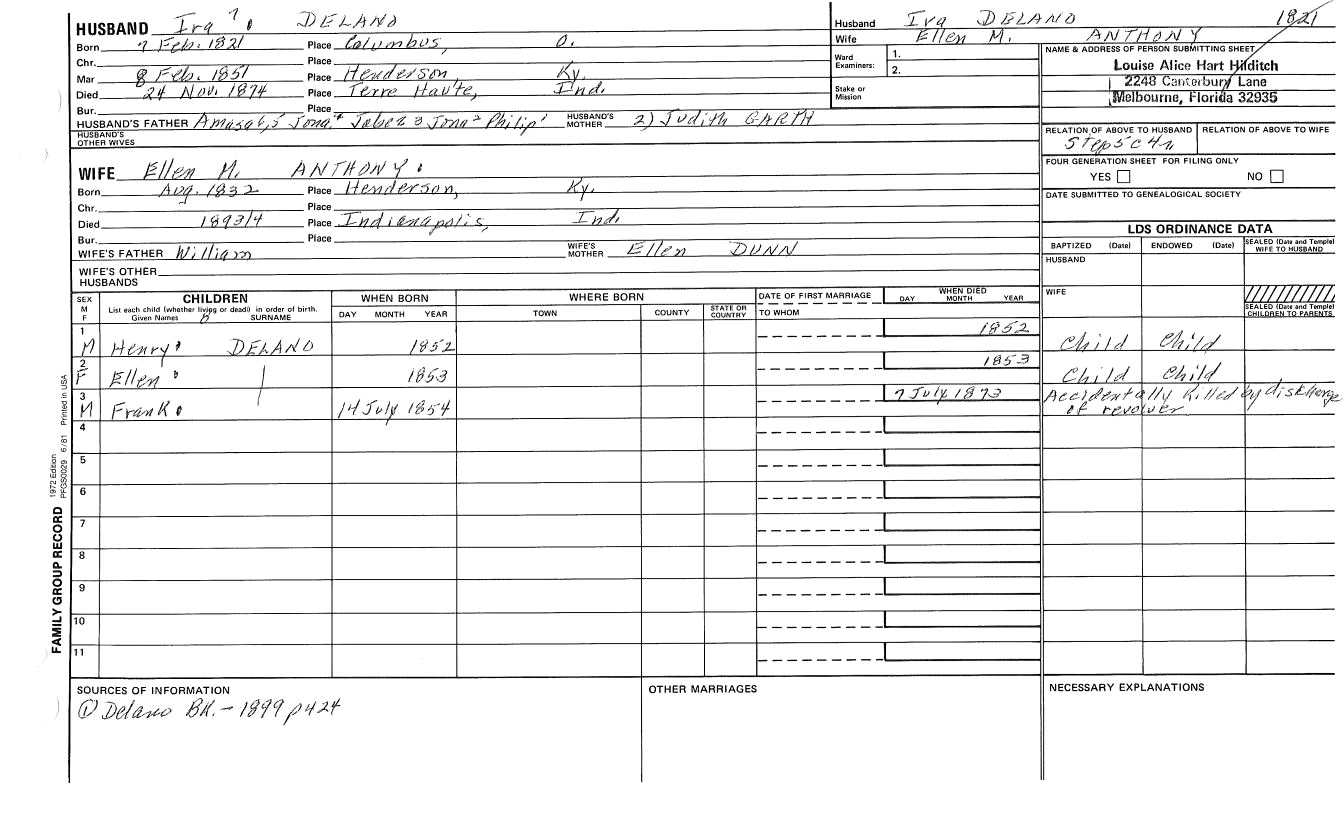 HUSBAND Ira 7 DELANO
Born 7 Feb. 1821 Place Columbus, O.
Chr. Place
Mar 8 Feb. 1851 Place Henderson, Ky.
Died 24 Nov. 1874 Place Terre Haute, Ind.
Bur. Place
HUSBAND'S FATHER Amasa 6, 5 Jona. 4 Jabez 3 Jona 2 Philip 1 HUSBAND'S MOTHER 2) Judith GARTH
HUSBAND'S OTHER WIVES
Husband Ira DELANO 1821
Wife Ellen M. ANTHONY
Ward Examiners: 1.
2.
Stake or Mission
NAME & ADDRESS OF PERSON SUBMITTING SHEET
Louise Alice Hart Hilditch
2248 Canterbury Lane
Melbourne, Florida 32935
RELATION OF ABOVE TO HUSBAND RELATION OF ABOVE TO WIFE
Step5C4r
FOUR GENERATION SHEET FOR FILING ONLY
YES NO
DATE SUBMITTED TO GENEALOGICAL SOCIETY
WIFE Ellen M. ANTHONY
Born Aug. 1832 Place Henderson, Ky.
Chr. Place
Died 1893/4 Place Indianapolis, Ind.
Bur. Place
WIFE'S FATHER William WIFE'S MOTHER Ellen DUNN
WIFE'S OTHER HUSBANDS
LDS ORDINANCE DATA
BAPTIZED (Date) ENDOWED (Date) SEALED (Date and Temple) WIFE TO HUSBAND
HUSBAND
WIFE
SEALED (Date and Temple) CHILDREN TO PARENTS
SEX M F CHILDREN List each child (whether living or dead) in order of birth. Given Names SURNAME WHEN BORN DAY MONTH YEAR WHERE BORN TOWN COUNTY STATE OR COUNTRY DATE OF FIRST MARRIAGE TO WHOM WHEN DIED DAY MONTH YEAR
1 M Henry DELANO 1852 1852 Child Child
2 F Ellen 1853 1853 Child Child
3 M Frank 14 July 1854 7 July 1873 Accidentally killed by discharge
of revolver
4
5
6
7
8
9
10
11
SOURCES OF INFORMATION
① Delano BK. - 1899 p424
OTHER MARRIAGES
NECESSARY EXPLANATIONS
FAMILY GROUP RECORD 1972 Edition PFGS0029 6/81 Printed in USA